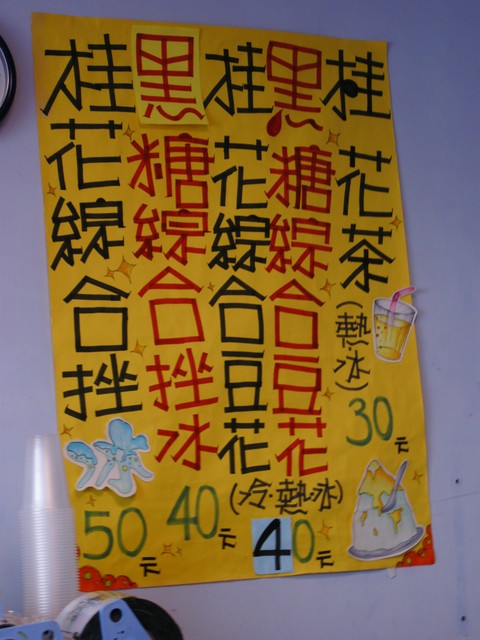 桂花茶
(熱·冰)
30元
黑糖綜合豆花
桂花綜合豆花
(冷·熱·冰)
40元
黑糖綜合挫冰
40元
桂花綜合挫
50元